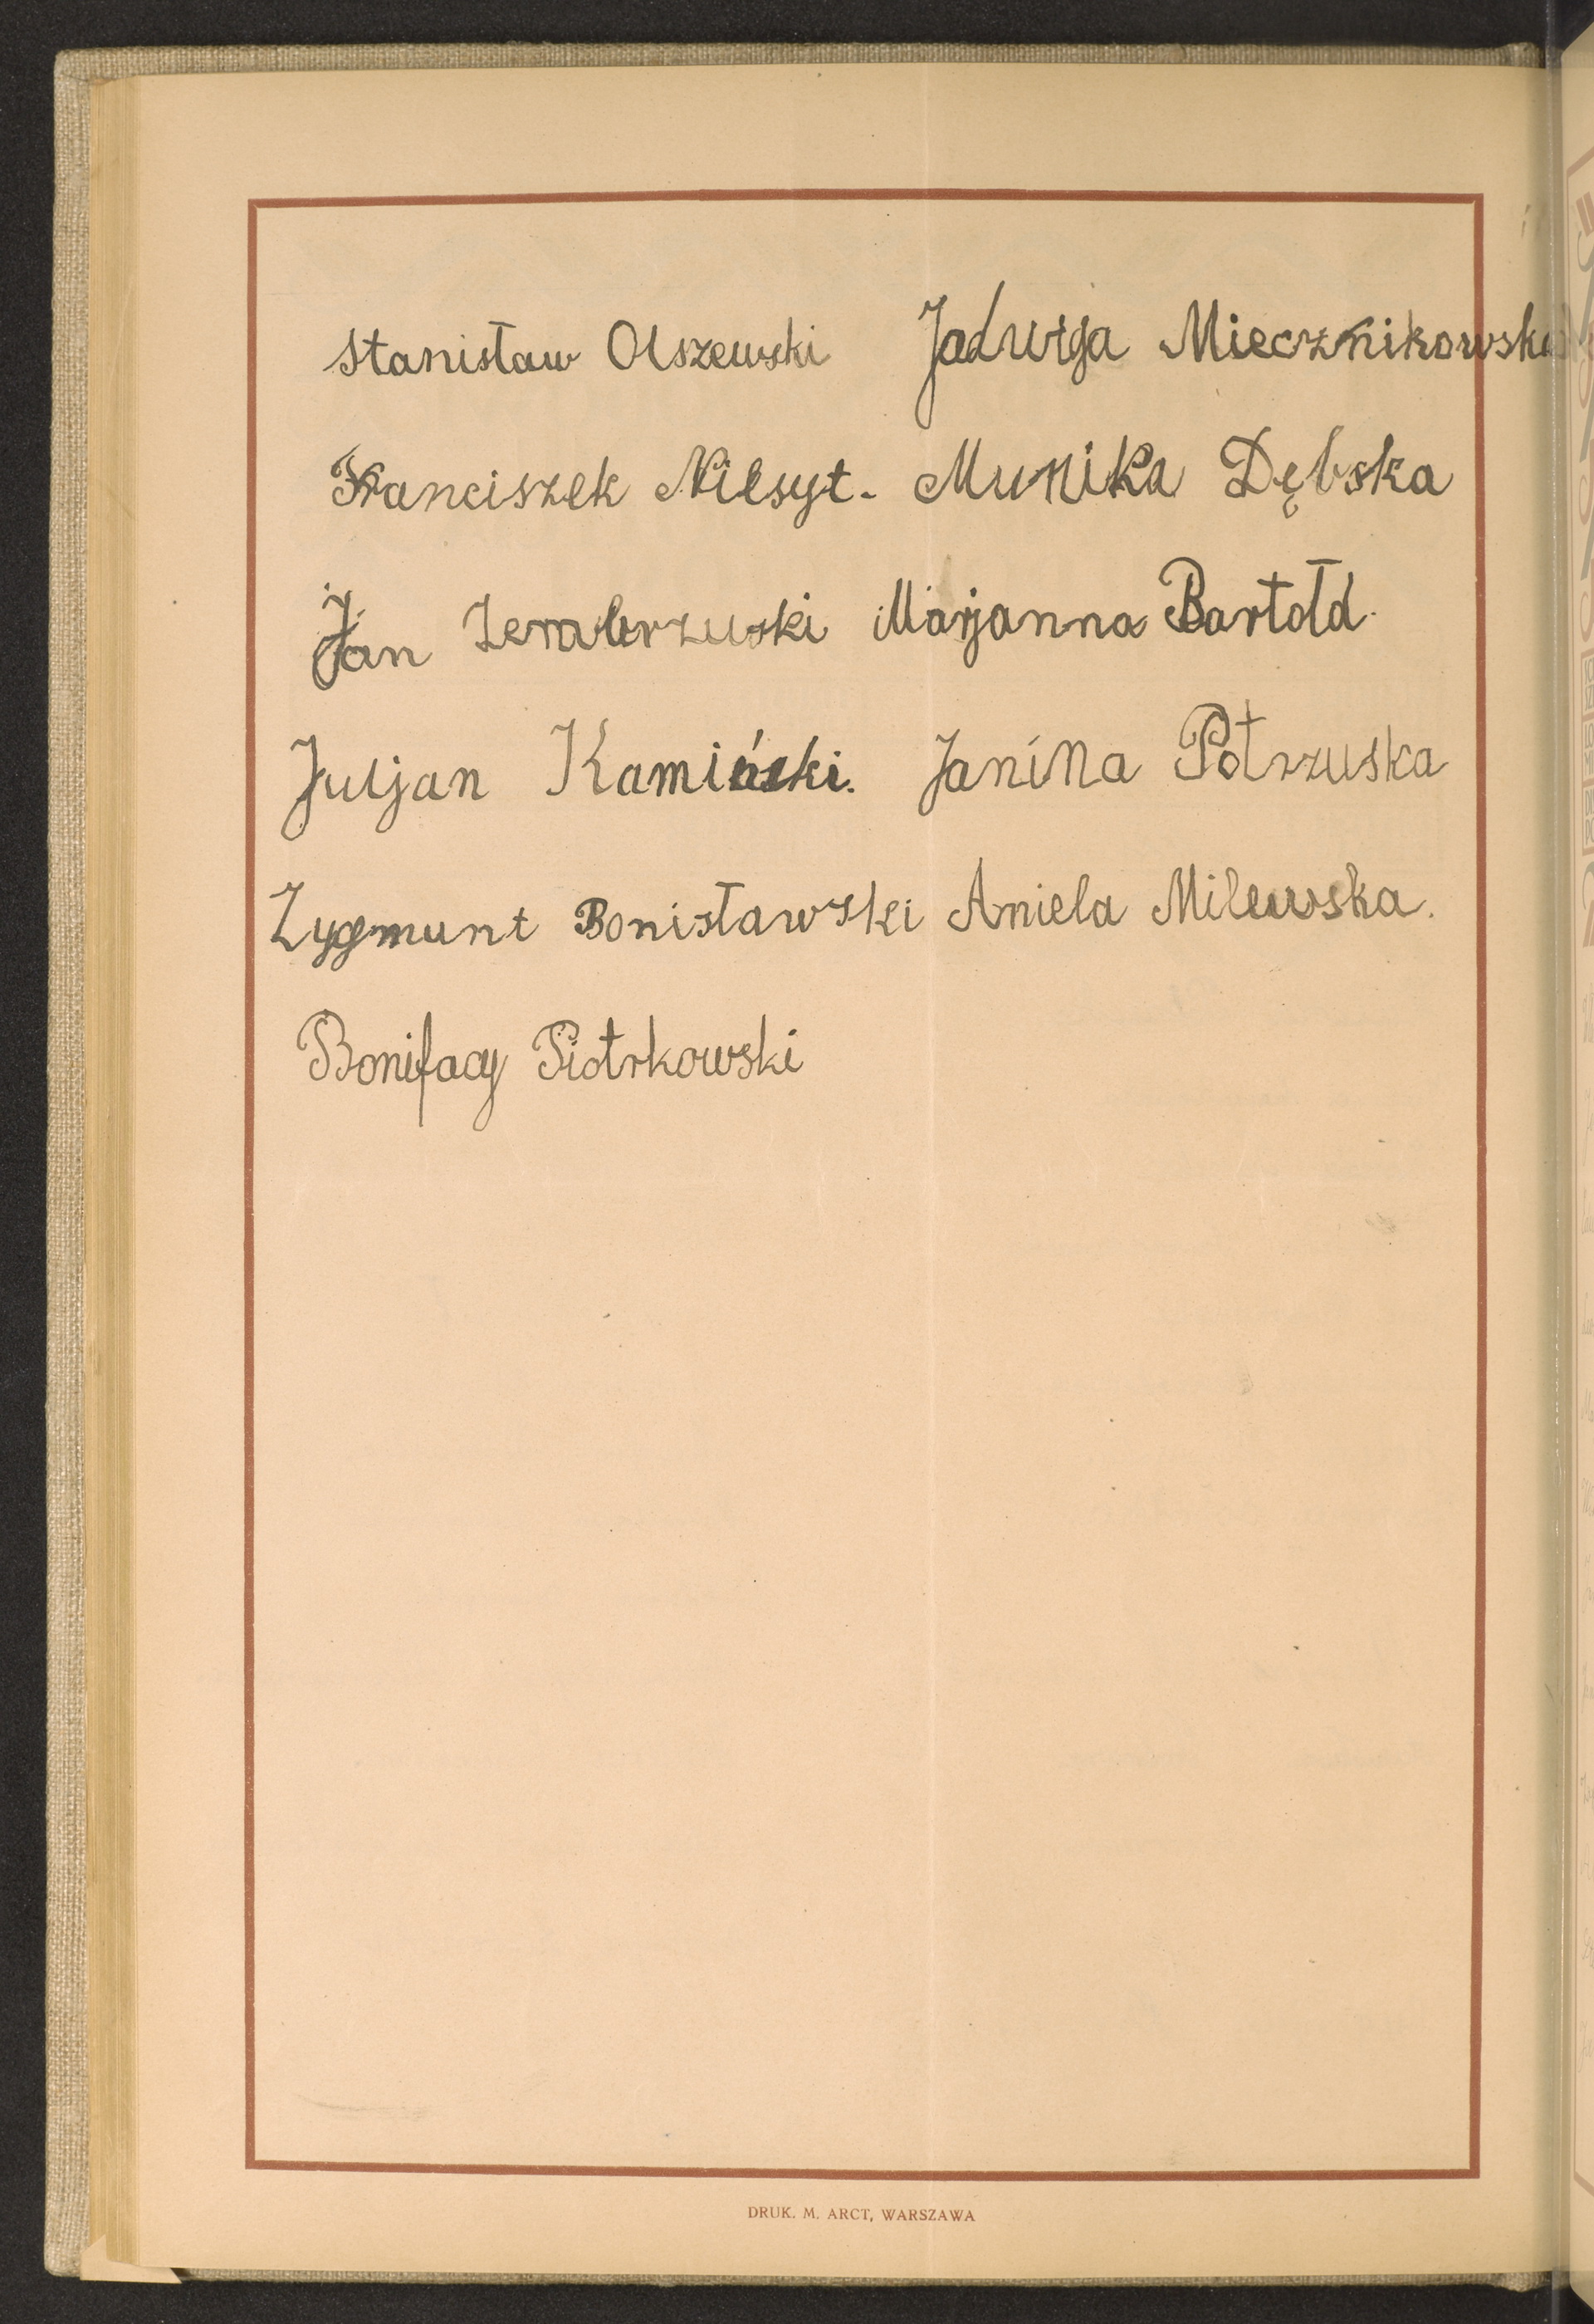 Stanisław Olszewski Jadwiga Miecznikowska
Franciszek Niesyt. Munika Dębska
Jan Zembrzuski Marjanna Bartołd.
Juljan Kamiński. Janina Potrzuska
Zygmunt Bonisławski Aniela Milewska.
Bonifacy Piotrkowski
DRUK. M. ARCT, WARSZAWA